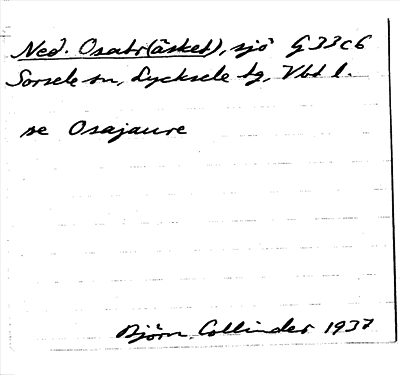 Ned. Osatr(äsket), sjö G33c6
Sorsele sn, Lycksele tg, Vbt l.
se Osajaure
Björn Collinder 1937